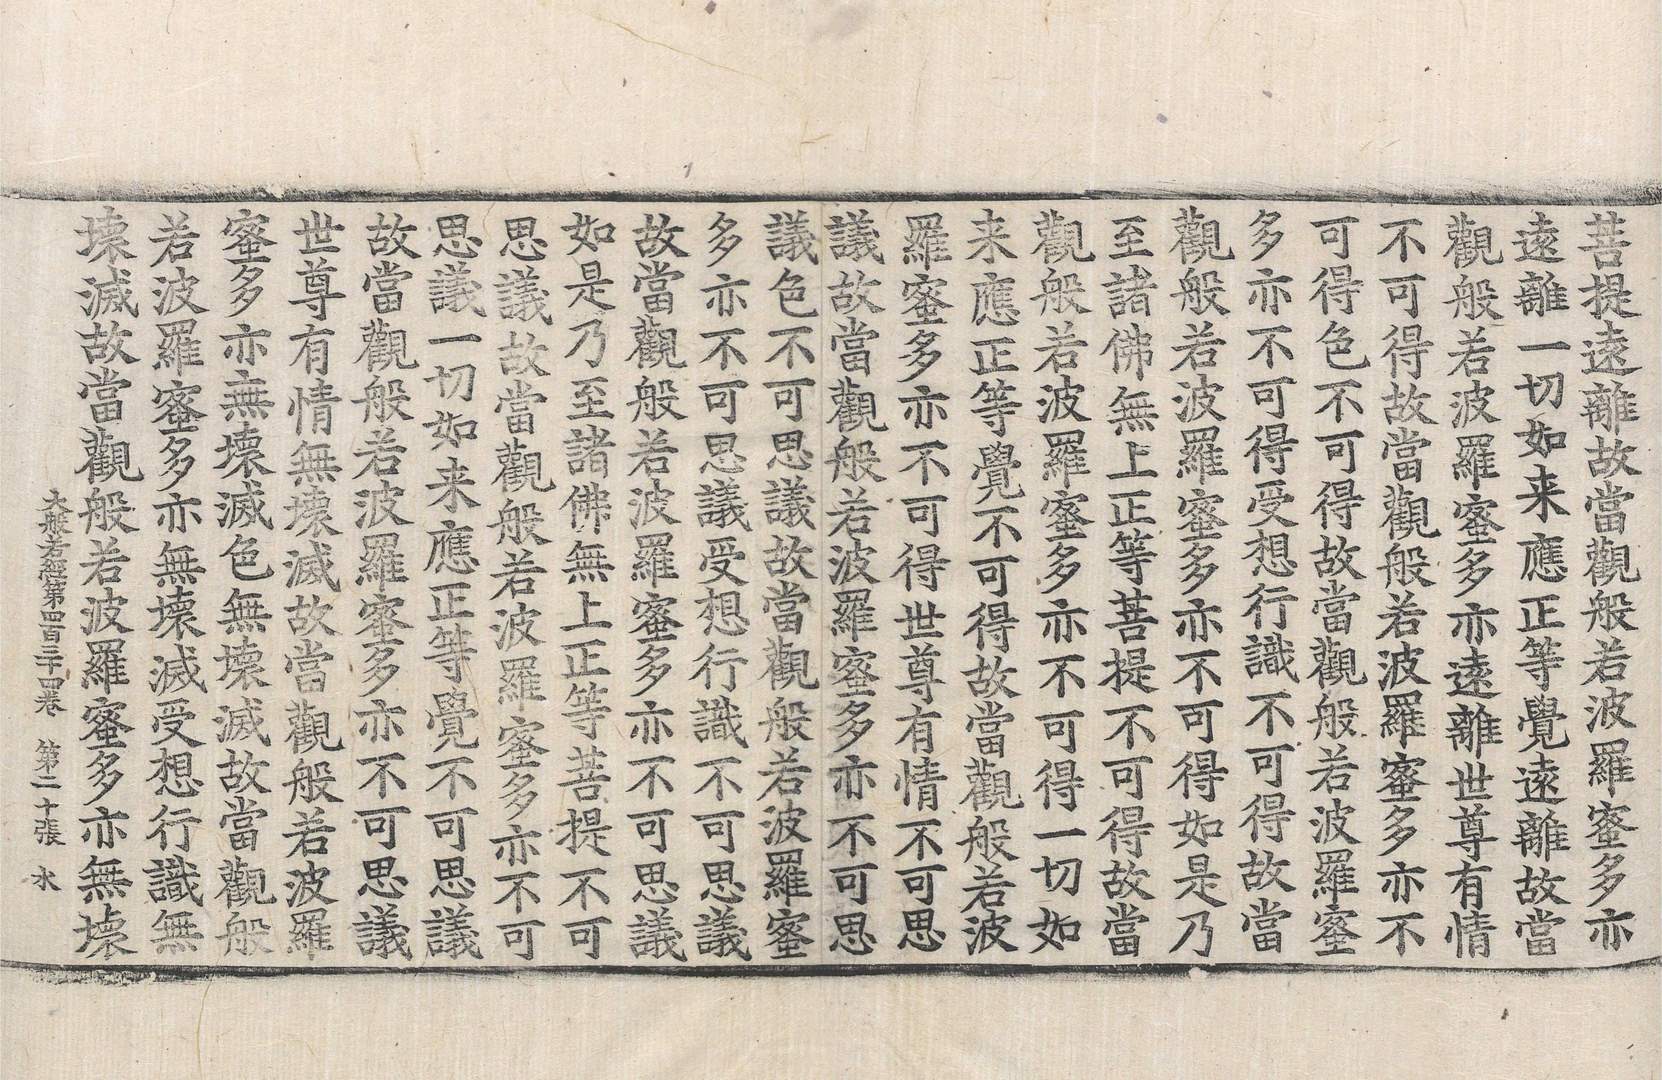 菩提遠離故當觀般若波羅蜜多亦
遠離一切如来應正等覺遠離故當
觀般若波羅蜜多亦遠離世尊有情
不可得故當觀般若波羅蜜多亦不
可得色不可得故當觀般若波羅蜜
多亦不可得受想行識不可得故當
觀般若波羅蜜多亦不可得如是乃
至諸佛無上正等菩提不可得故當
觀般若波羅蜜多亦不可得一切如
来應正等覺不可得故當觀般若波
羅蜜多亦不可得世尊有情不可思
議故當觀般若波羅蜜多亦不可思
議色不可思議故當觀般若波羅蜜
多亦不可思議受想行識不可思議
故當觀般若波羅蜜多亦不可思議
如是乃至諸佛無上正等菩提不可
思議故當觀般若波羅蜜多亦不可
思議一切如来應正等覺不可思議
故當觀般若波羅蜜多亦不可思議
世尊有情無壞滅故當觀般若波羅
蜜多亦無壞滅色無壞滅故當觀般
若波羅蜜多亦無壞滅受想行識無
壞滅故當觀般若波羅蜜多亦無壞
大般若經第四百三十四卷　第二十張　水